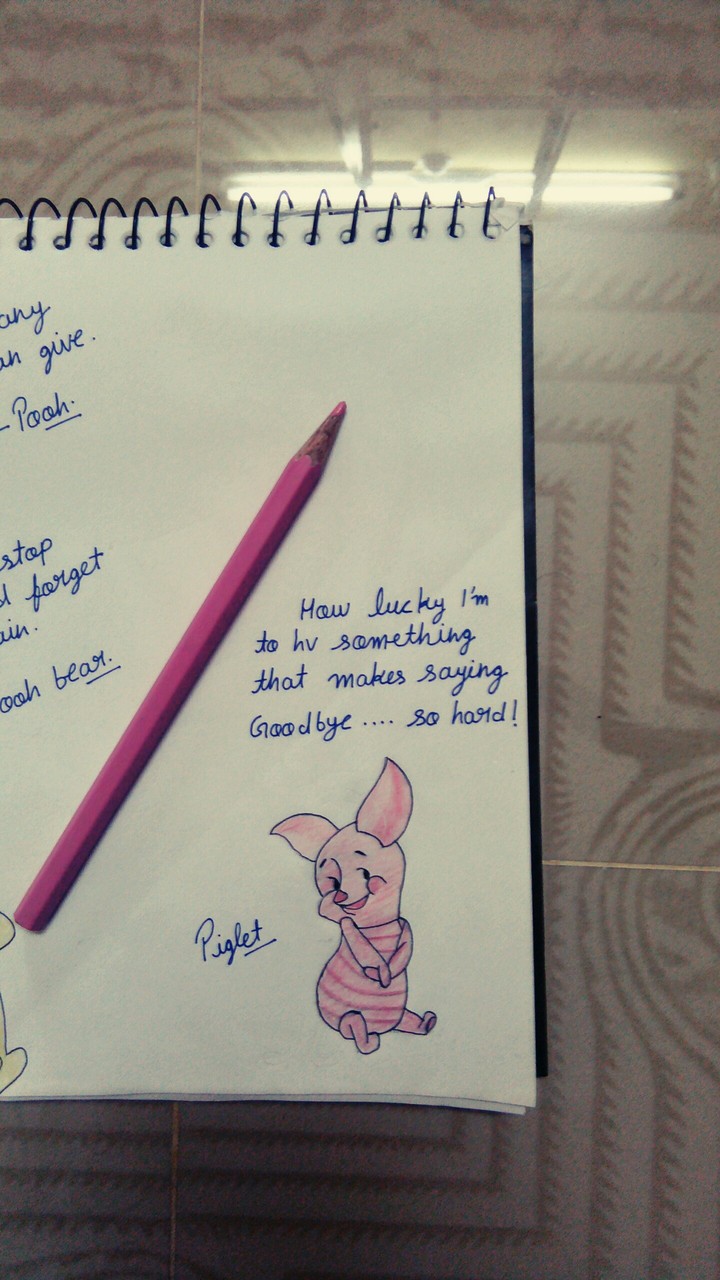 any
an give.
- Pooh.
stop
forget
ain.
ooh bear.
How lucky I'm
to hv something
that makes saying
Goodbye .... so hard!
Piglet